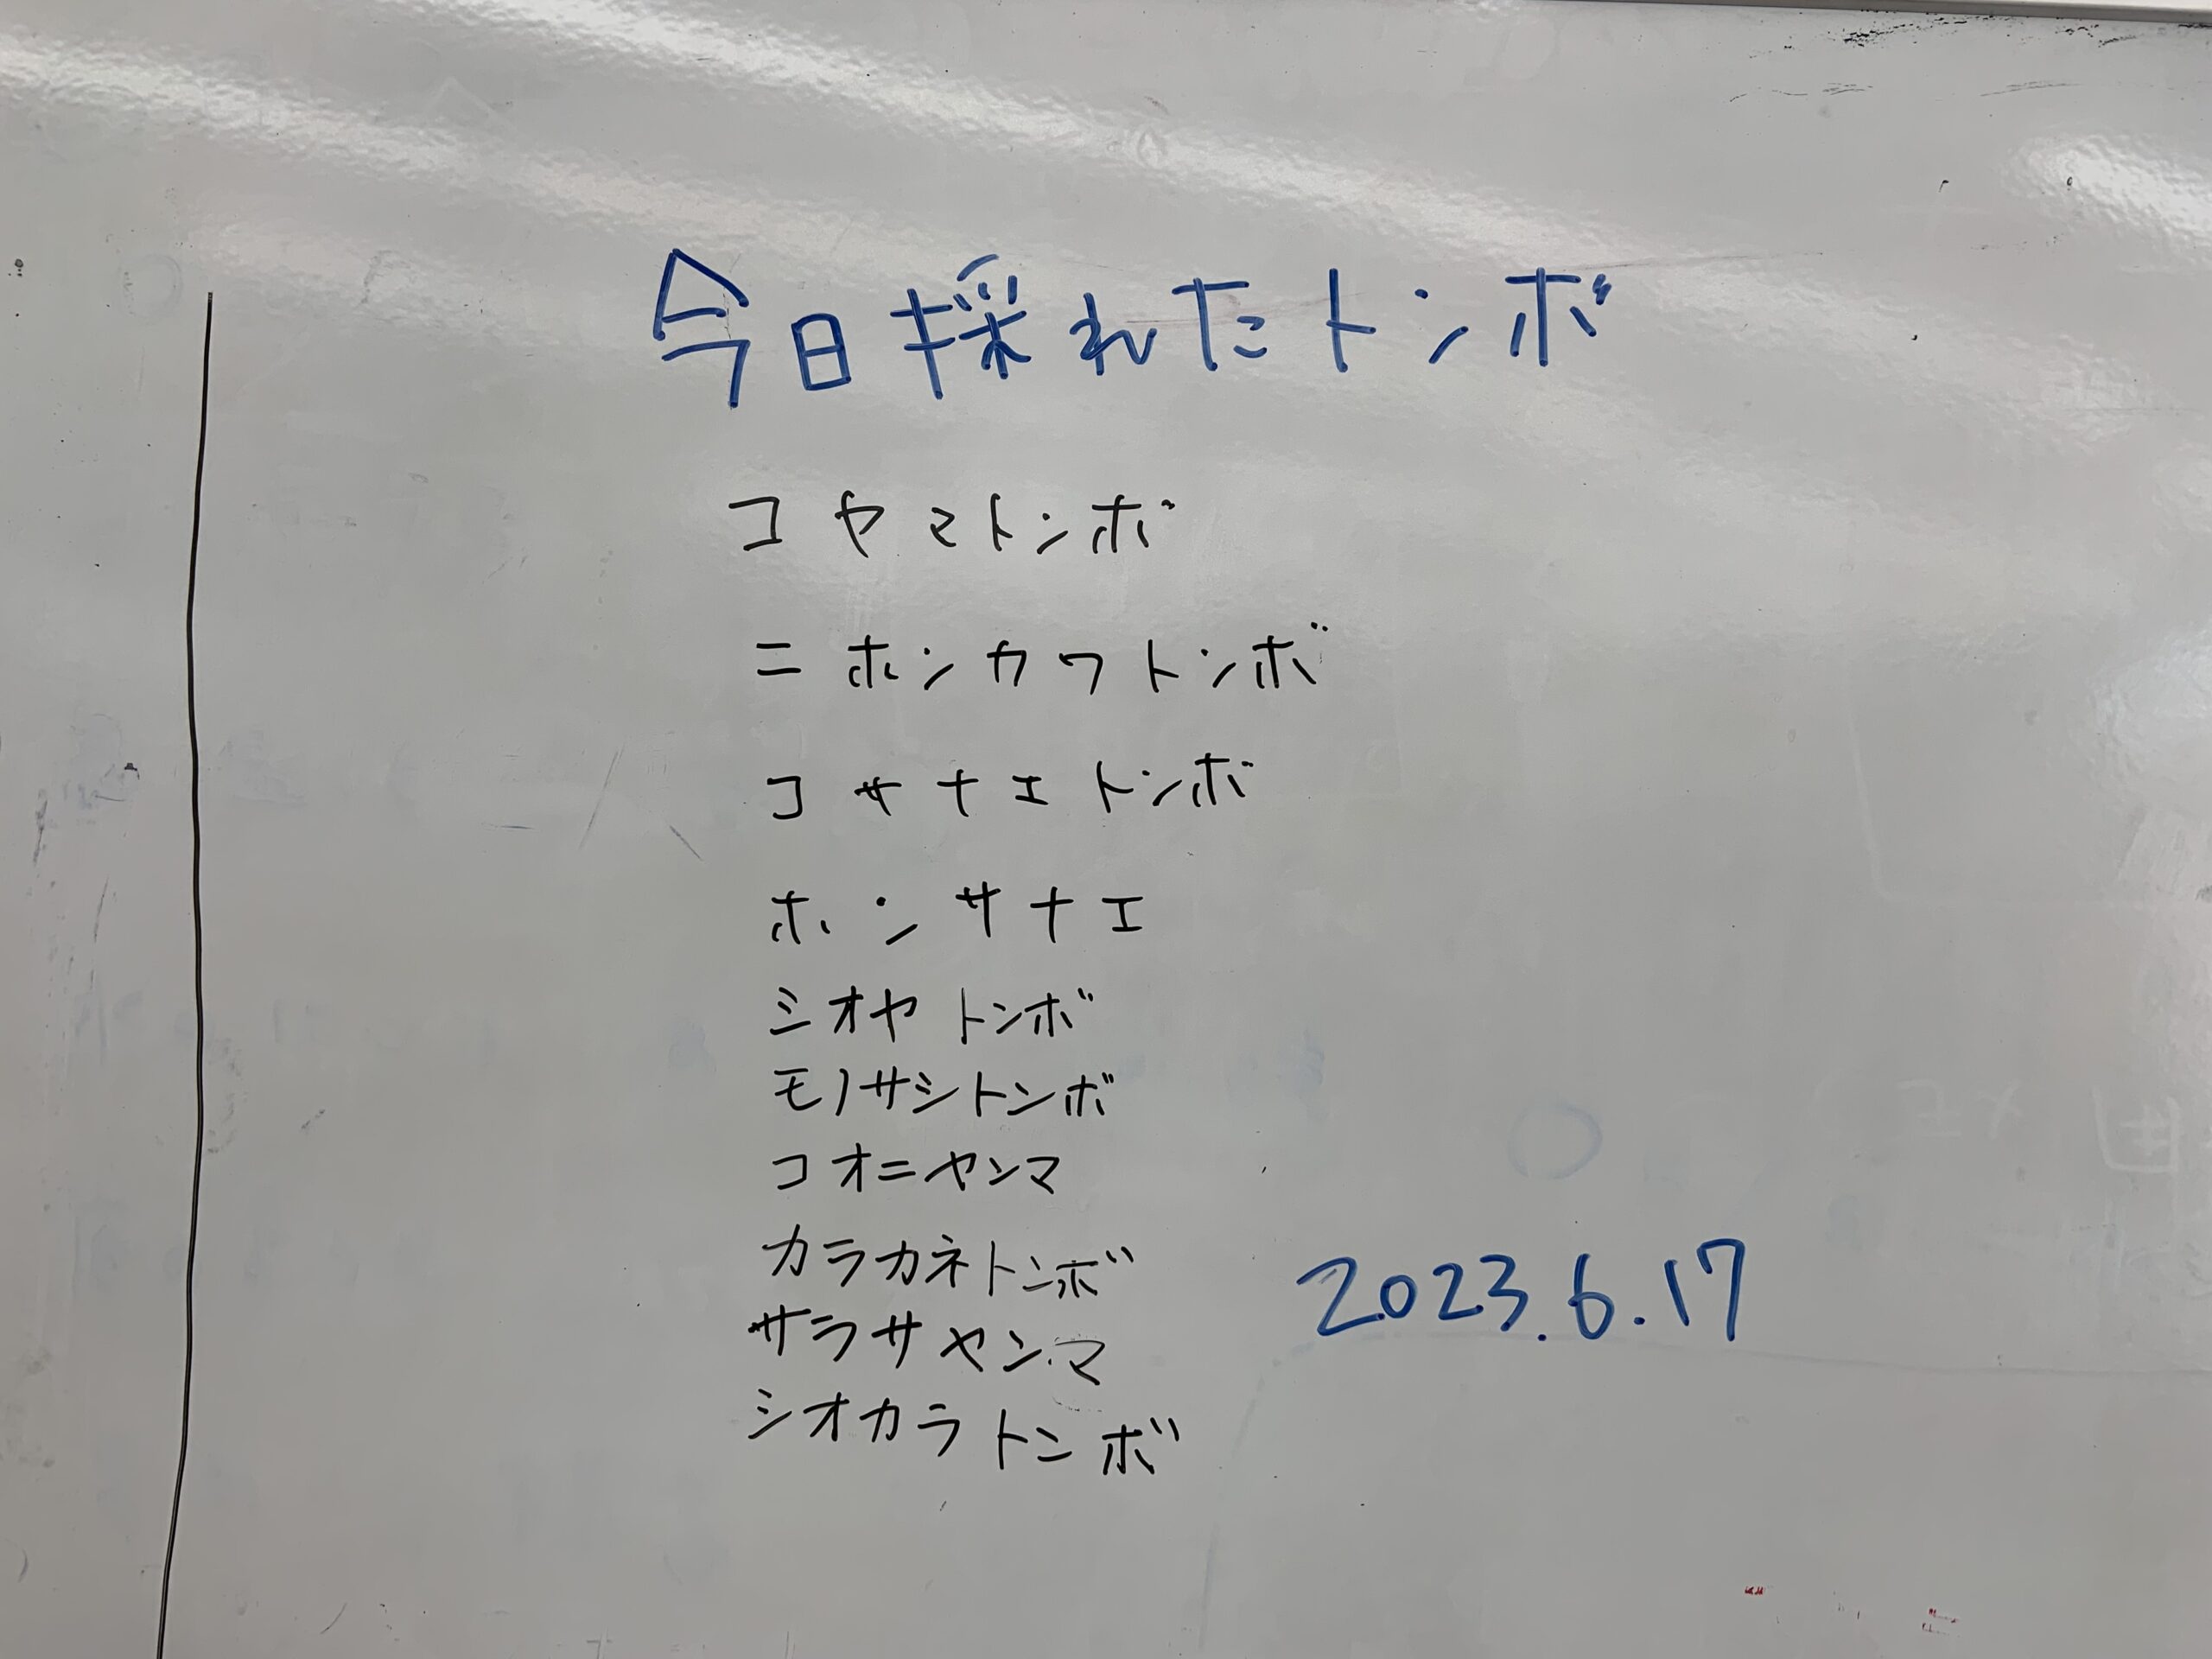 今日採れたトンボ
コヤマトンボ
ニホンカワトンボ
コサナエトンボ
ホンサナエ
シオヤトンボ
モノサシトンボ
コオニヤンマ
カラカネトンボ
サラサヤンマ
シオカラトンボ
2023.6.17